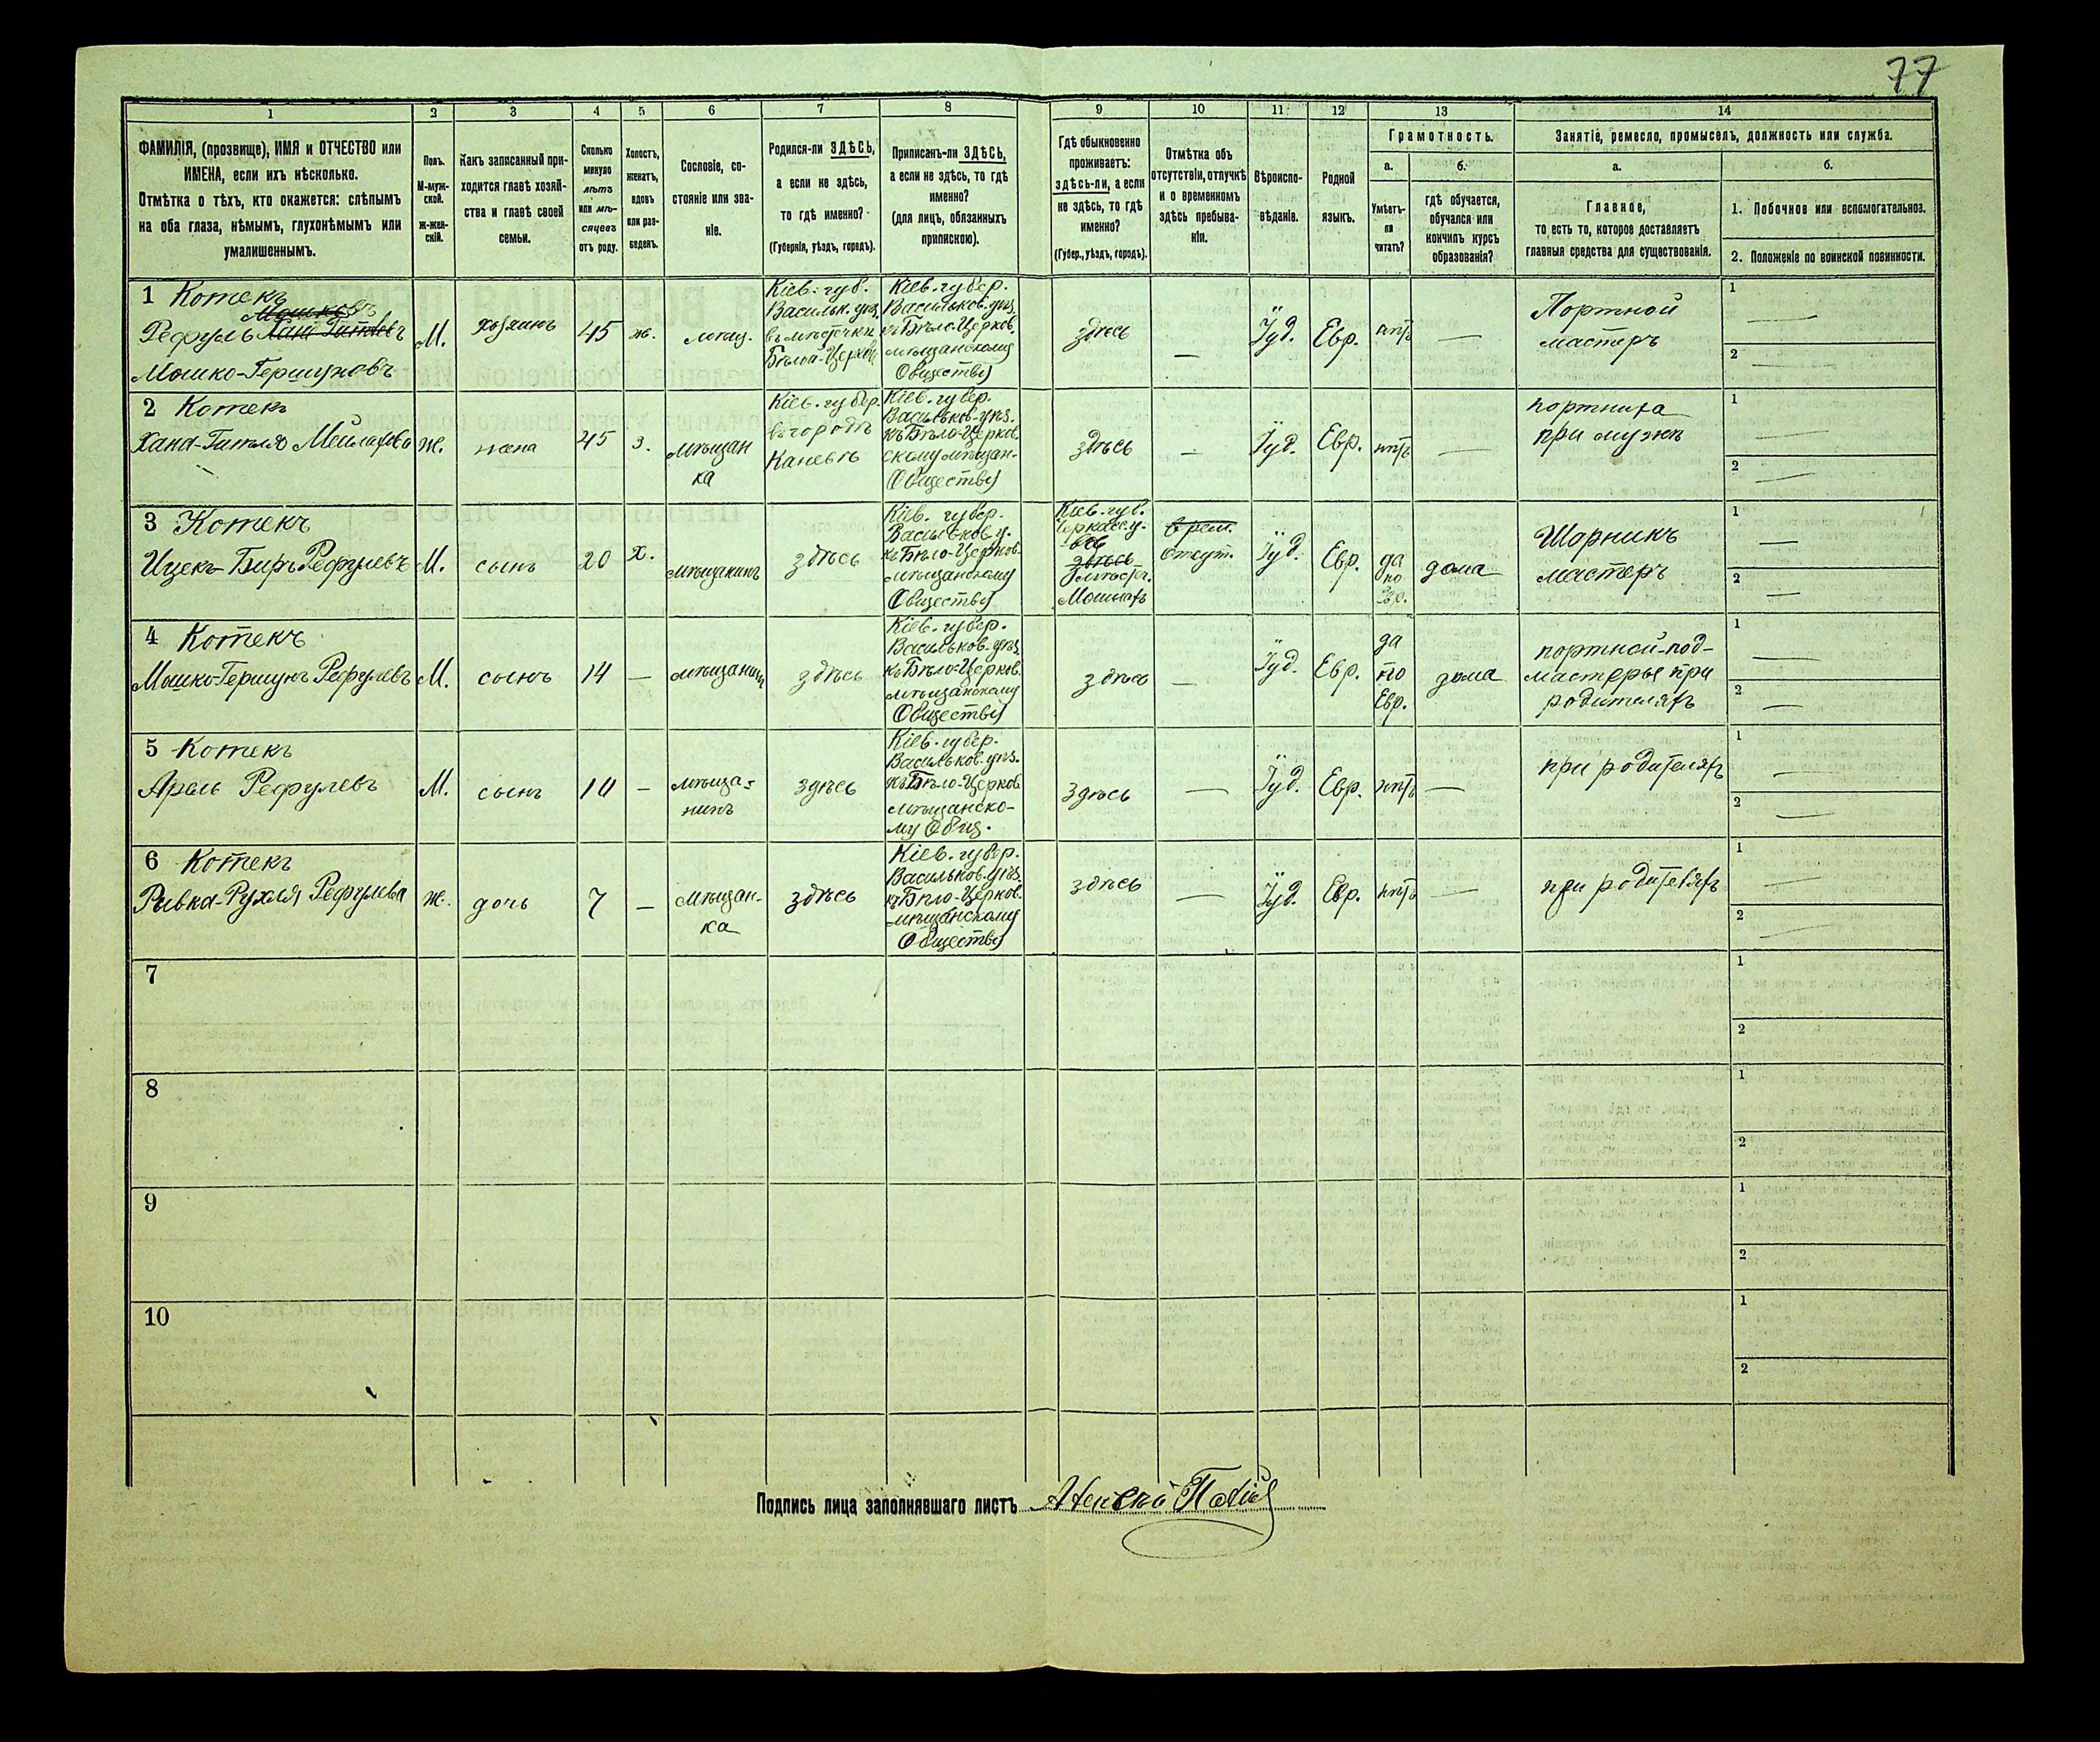 77
1 2 3 4 5 6 7 8 9 10 11 12 13 14
ФАМИЛІЯ, (прозвище), ИМЯ и ОТЧЕСТВО или
ИМЕНА, если ихъ нѣсколько.
Отмѣтка о тѣхъ, кто окажется: слѣпымъ
на оба глаза, нѣмымъ, глухонѣмымъ или
умалишеннымъ.
Полъ.
М-муж-
ской.
ж-жен-
скій.
Какъ записанный при-
ходится главѣ хозяй-
ства и главѣ своей
семьи.
Сколько
минуло
лѣтъ
или мѣ-
сяцевъ
отъ роду.
Холостъ,
женатъ,
вдовъ
или раз-
веденъ.
Сословіе, со-
стояніе или зва-
ніе.
Родился-ли ЗДѢСЬ,
а если не здѣсь,
то гдѣ именно?
(Губернія, уѣздъ, городъ).
Приписанъ-ли ЗДѢСЬ,
а если не здѣсь, то гдѣ
именно?
(для лицъ, обязанныхъ
припискою).
Гдѣ обыкновенно
проживаетъ:
здѣсь-ли, а если
не здѣсь, то гдѣ
именно?
(Губер., уѣздъ, городъ).
Отмѣтка объ
отсутствіи, отлучкѣ
и о временномъ
здѣсь пребыва-
ніи.
Вѣроиспо-
вѣданіе.
Родной
языкъ.
Грамотность.
а.
Умѣетъ-
ли
читать?
б.
гдѣ обучается,
обучался или
кончилъ курсъ
образованія?
Занятіе, ремесло, промыселъ, должность или служба.
а.
Главное,
то есть то, которое доставляетъ
главныя средства для существованія.
б.
1. Побочное или вспомогательное.
2. Положеніе по воинской повинности.
1 Котекъ
Рефулъ
Мошко-Гершуновъ
М.
хозяинъ
45
ж.
мѣщ.
Кіев. губ.
Васильк. уѣз.
въ мѣстечкѣ
Бѣлой-Церкви
Кіев. губер.
Васильков. уѣз.
къ Бѣло-Церков.
мѣщанскому
Обществу
здѣсь
—
Іуд.
Евр.
нѣтъ
—
Портной
мастеръ
1
2
2 Котекъ
Хана-Гитля Мейлахова
ж.
жена
45
з.
мѣщан
ка
Кіев. губер.
въ городѣ
Каневѣ
Кіев. губер.
Васильков. уѣз.
къ Бѣло-Церков.
скому мѣщан.
Обществу
здѣсь
—
Іуд.
Евр.
нѣтъ
—
портниха
при мужѣ
1
2
3 Котекъ
Ицек-Беръ Рефулевъ
М.
сынъ
20
х.
мѣщанинъ
здѣсь
Кіев. губер.
Васильков. у.
къ Бѣло-Церков.
мѣщанскому
Обществу
Кіев. губ.
Черкасс. у.
здѣсь
Мошнахъ
врем.
отсут.
Іуд.
Евр.
да
по
Евр.
дома
Шорникъ
мастеръ
1
2
4 Котекъ
Мошко-Гершунъ Рефулевъ
М.
сынъ
14
—
мѣщанинъ
здѣсь
Кіев. губер.
Васильков. уѣз.
къ Бѣло-Церков.
мѣщанскому
Обществу
здѣсь
—
Іуд.
Евр.
да
по
Евр.
дома
портной-под-
мастерье при
родителяхъ
1
2
5 Котекъ
Арель Рефулевъ
М.
сынъ
—
мѣща-
нинъ
здѣсь
Кіев. губер.
Васильков. уѣз.
къ Бѣло-Церков.
мѣщанско-
му Общ.
здѣсь
—
Іуд.
Евр.
нѣтъ
—
при родителяхъ
1
2
6 Котекъ
Ривка-Рухля Рефулева
ж.
дочь
7
—
мѣщан-
ка
здѣсь
Кіев. губер.
Васильков. уѣз.
къ Бѣло-Церков.
мѣщанскому
Обществу
здѣсь
—
Іуд.
Евр.
нѣтъ
—
при родителяхъ
1
2
7
1
2
8
1
2
9
1
2
10
1
2
Подпись лица заполнявшаго листъ